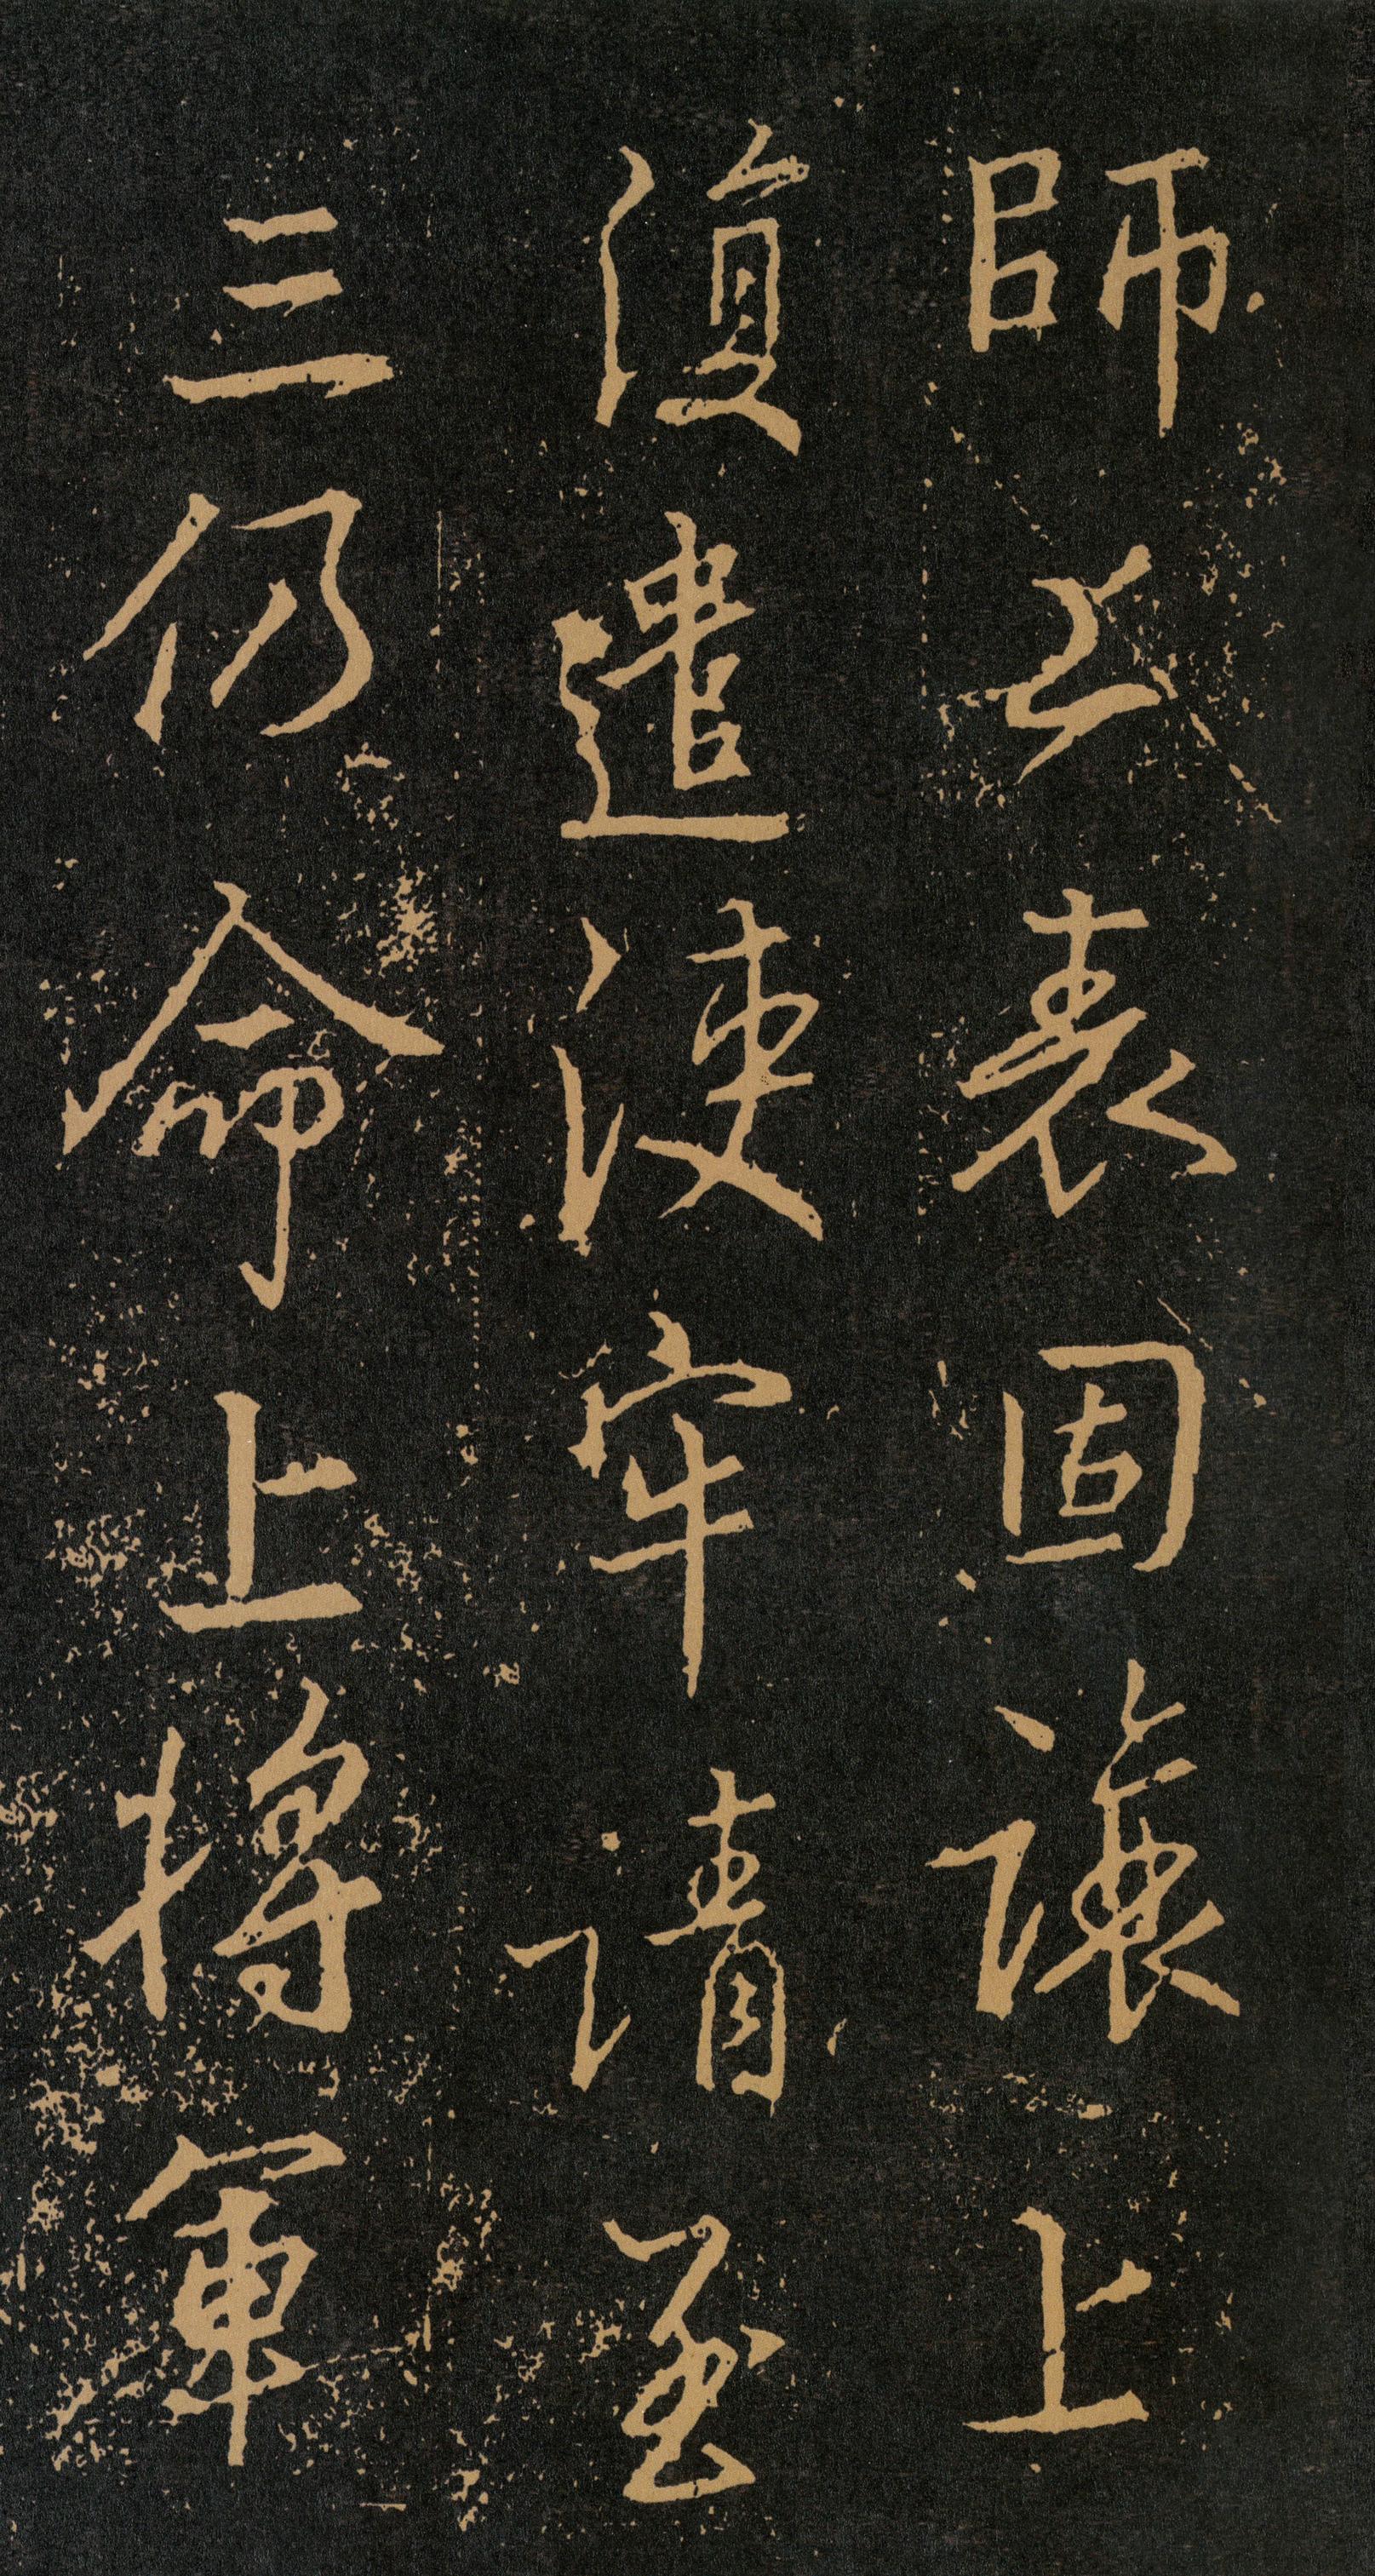 師兵表固讓上
復遣使牢請至
三仍命上將軍